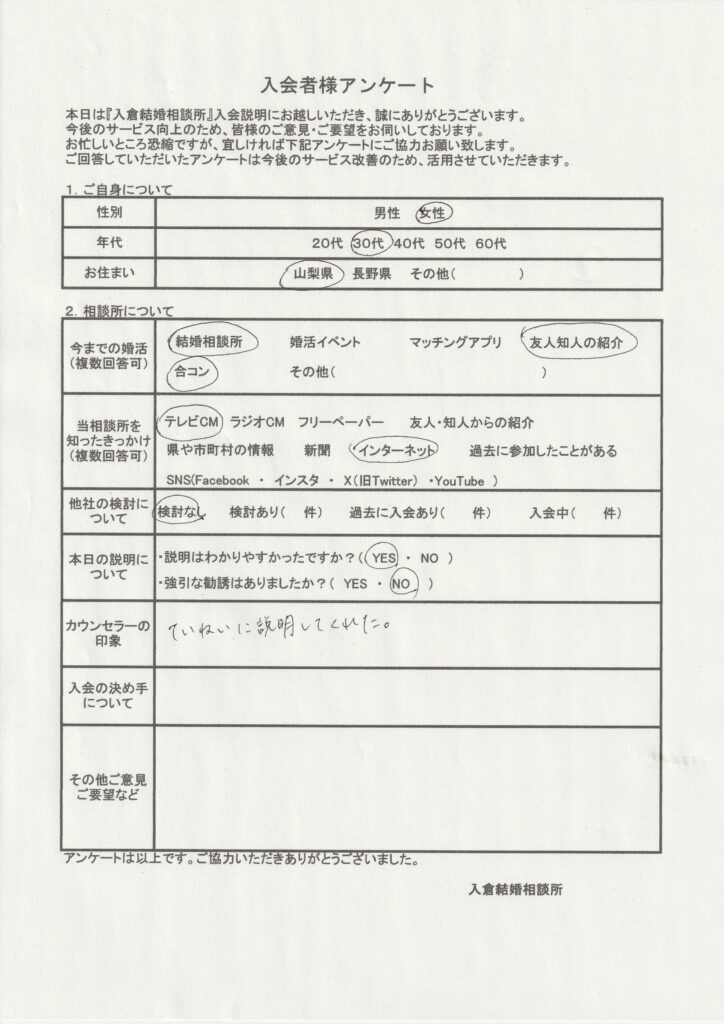 入会者様アンケート
本日は『入倉結婚相談所』入会説明にお越しいただき、誠にありがとうございます。
今後のサービス向上のため、皆様のご意見・ご要望をお伺いしております。
お忙しいところ恐縮ですが、宜しければ下記アンケートにご協力お願い致します。
ご回答していただいたアンケートは今後のサービス改善のため、活用させていただきます。
1. ご自身について
性別 男性 女性
年代 20代 30代 40代 50代 60代
お住まい 山梨県 長野県 その他( )
2. 相談所について
今までの婚活
(複数回答可)
結婚相談所 婚活イベント マッチングアプリ 友人知人の紹介
合コン その他( )
当相談所を
知ったきっかけ
(複数回答可)
テレビCM ラジオCM フリーペーパー 友人・知人からの紹介
県や市町村の情報 新聞 インターネット 過去に参加したことがある
SNS(Facebook ・ インスタ ・ X(旧Twitter) ・YouTube )
他社の検討に
ついて
検討なし 検討あり( 件) 過去に入会あり( 件) 入会中( 件)
本日の説明に
ついて
・説明はわかりやすかったですか?( YES ・ NO )
・強引な勧誘はありましたか?( YES ・ NO )
カウンセラーの
印象
ていねいに説明してくれた。
入会の決め手
について
その他ご意見
ご要望など
アンケートは以上です。ご協力いただきありがとうございました。
入倉結婚相談所